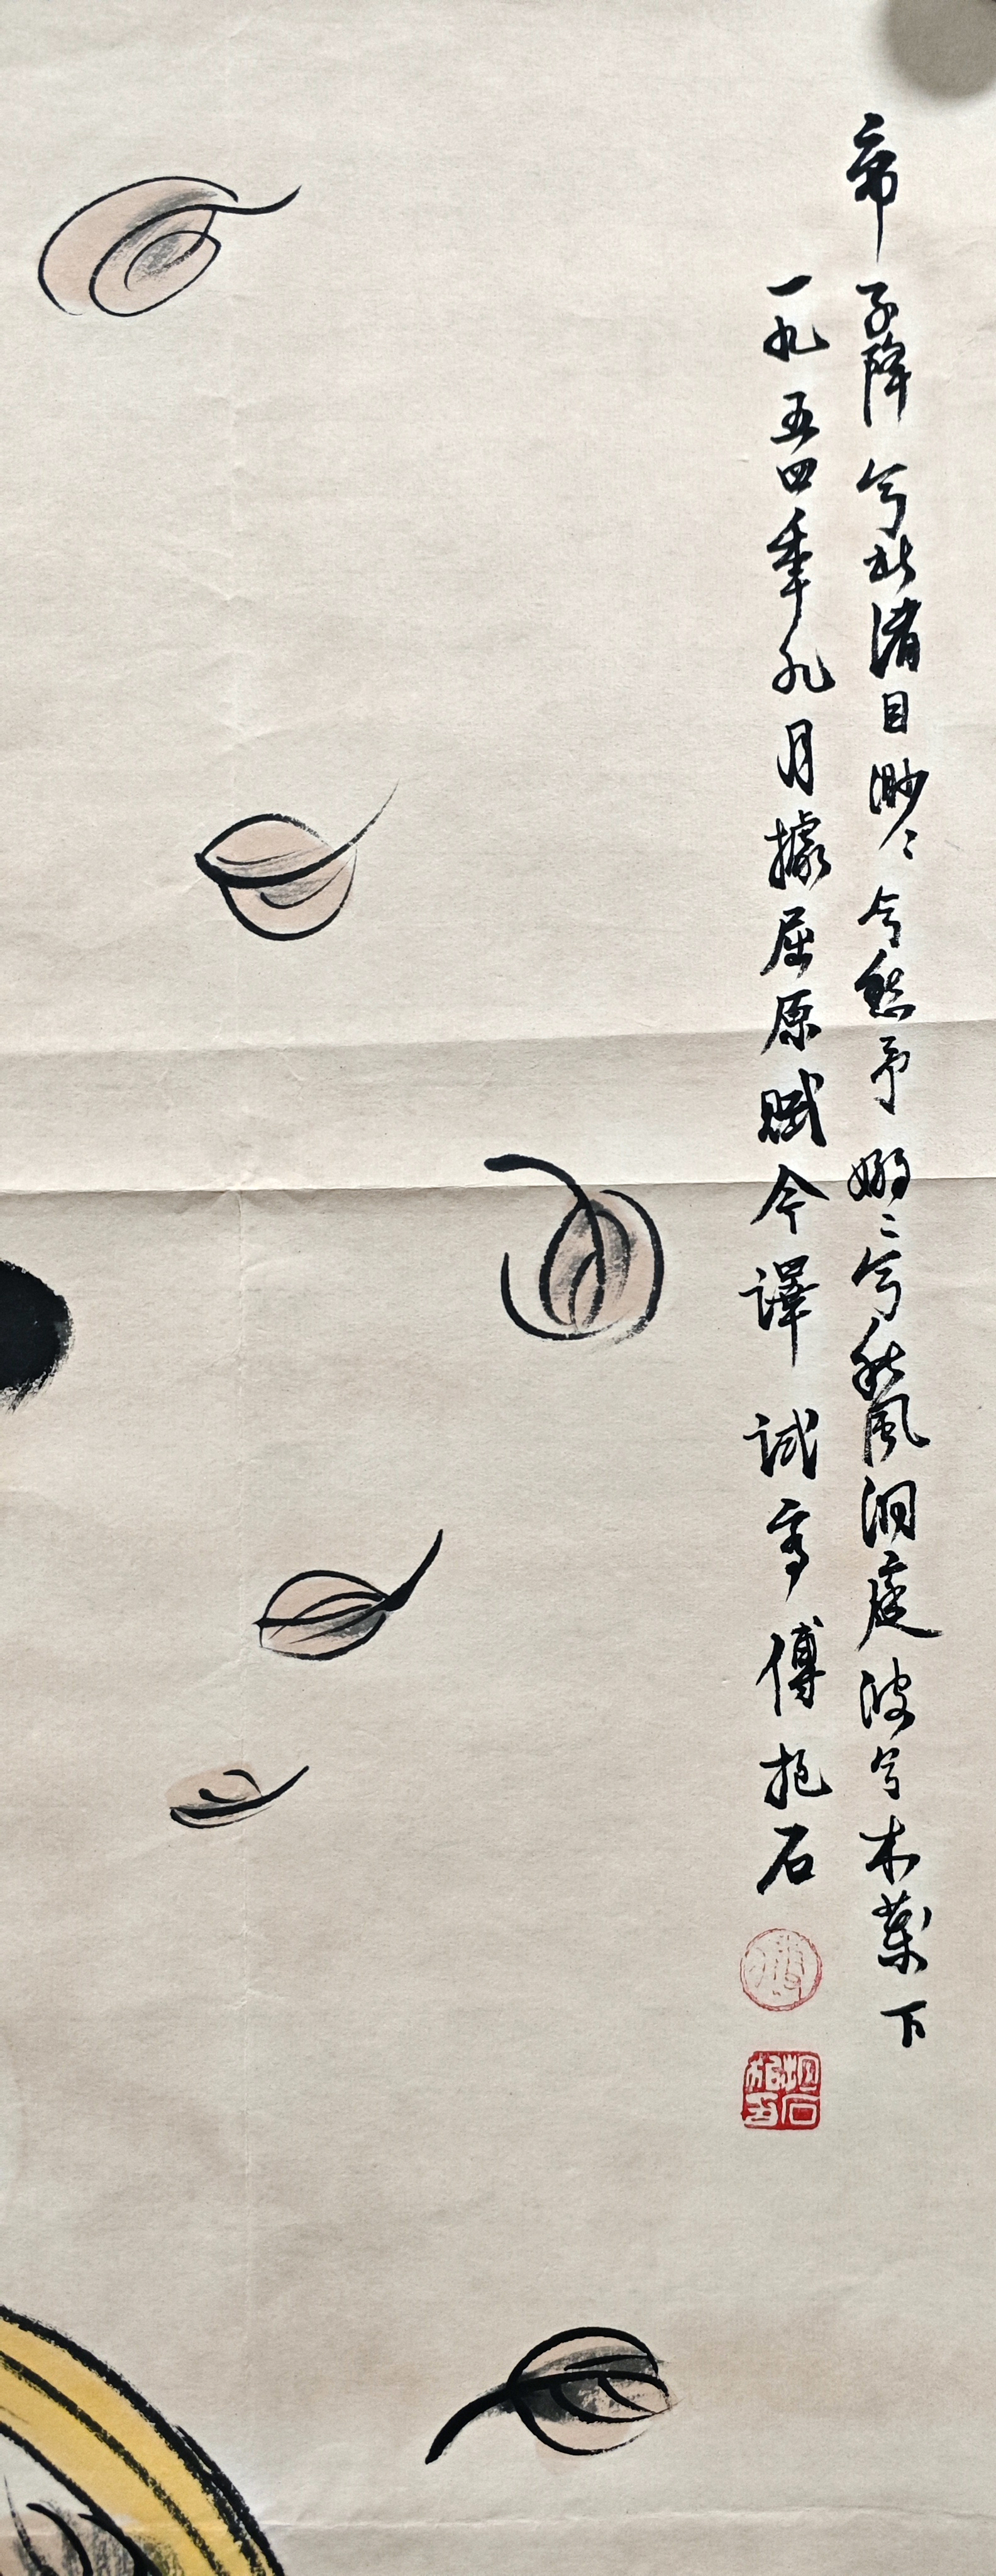 帝子降兮北渚目渺〻兮愁予嫋〻兮秋風洞庭波兮木葉下
一九五四年九月據屈原賦今譯試寫傅抱石
傅
抱石